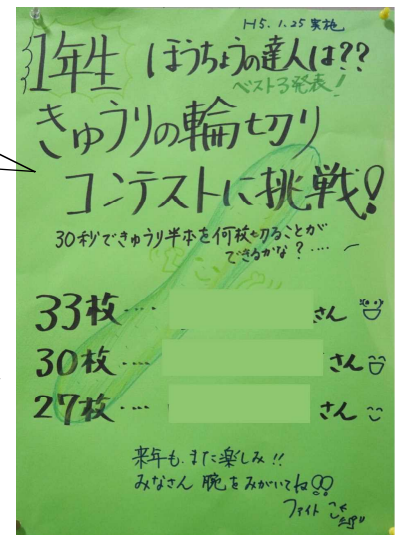 H5.1.25実施
1年生 ほうちょうの達人は??
ベスト3発表!
きゅうりの輪切り
コンテストに挑戦!
30秒できゅうり半本を何枚切ることが
できるかな?‥‥
33枚‥‥ さん
30枚‥‥ さん
27枚‥‥ さん
来年も、また楽しみ!!
みなさん 腕をみがいてね!!
ファイト